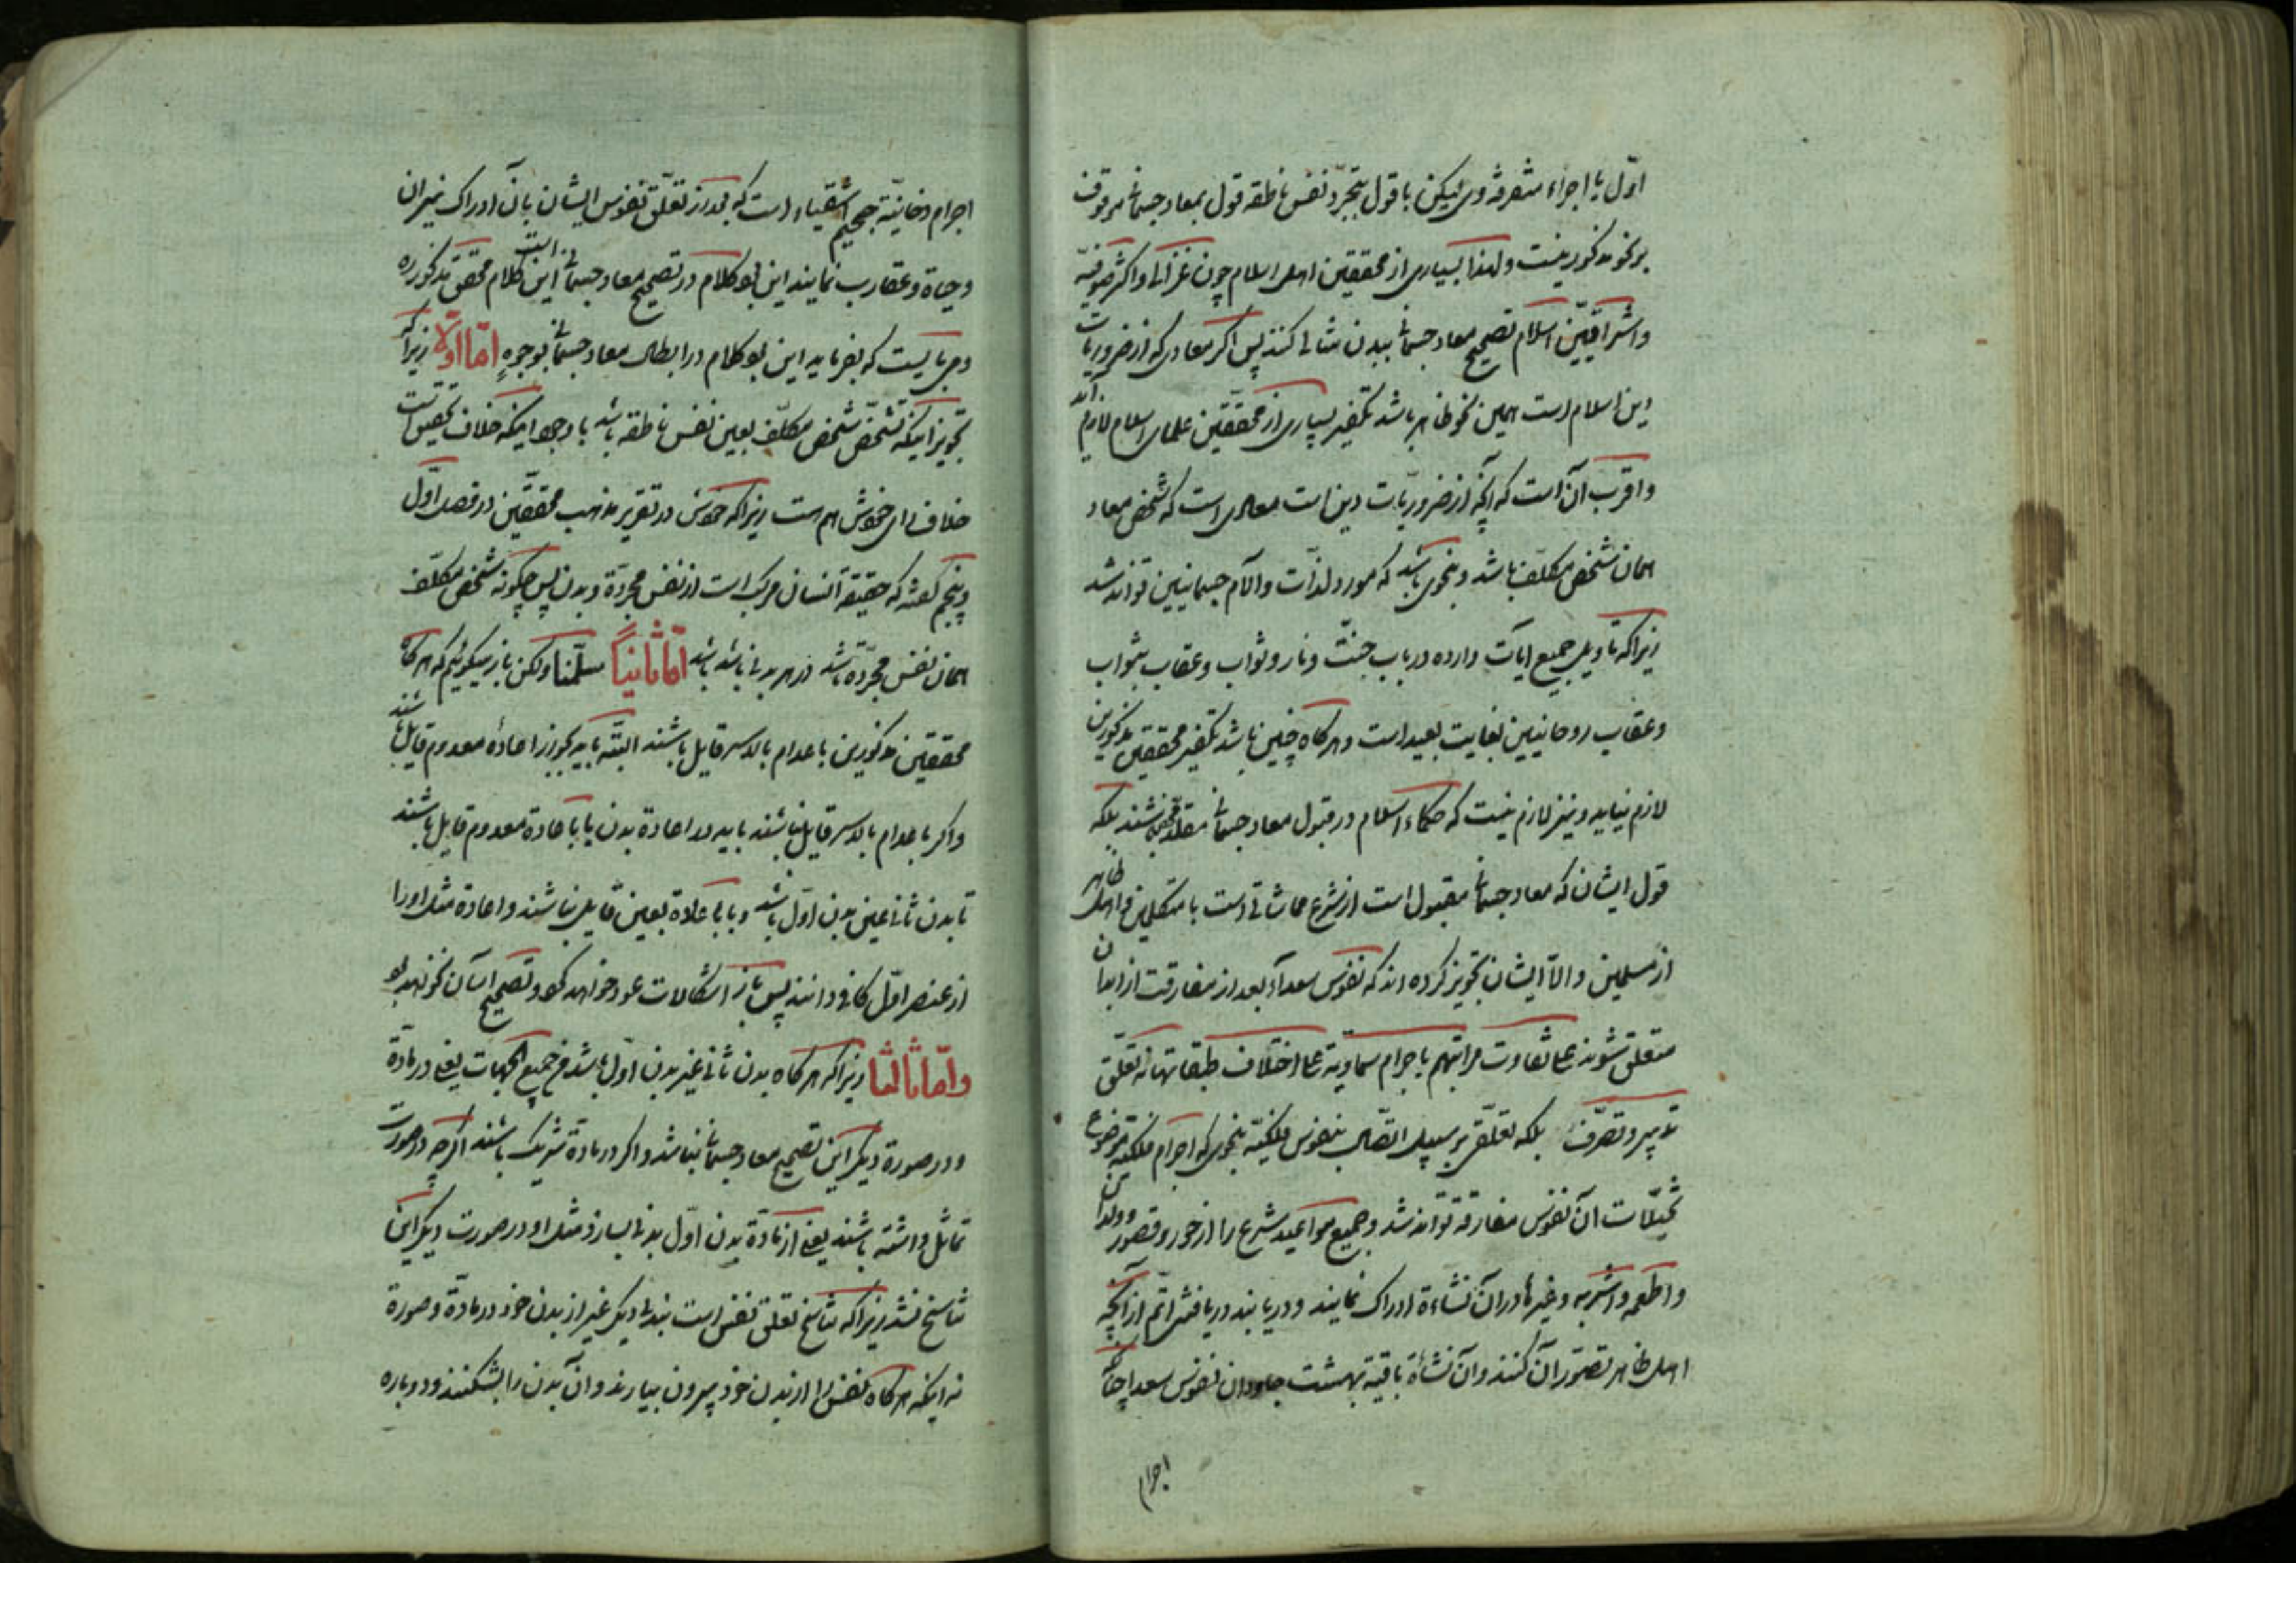 اوّل یا اجزاء متفرقهٔ وی لیکن با قول بتجرّد نفس ناطقه قول بمعاد جسمانی موقوف
بر نحو مذکور نیست ولهذا بسیاری از محققین اهل اسلام چون غزالی و اکثر صوفیّه
و اشراقیّین اسلام تصحیح معاد جسمانی ببدن مثالی کنند پس اگر معادی که از ضروریات
دین اسلام است همین نحو ظاهر باشد تکفیر بسیاری از محقّقین علمای اسلام لازم آید
و اقرب آن است که آنچه از ضروریّات دین است معادی است که شخص معاد
همان شخص مکلّف باشد و بنحوی باشد که مورد لذّات و الآم جسمانیین تواند شد
زیرا که تاویل جمیع ایآت وارده در باب جنّت و نار و ثواب و عقاب بثواب
و عقاب روحانیین بغایت بعید است و هر کاه چنین باشد تکفیر محققین مذکورین
لازم نیاید و نیز لازم نیست که حکماء اسلام در قبول معاد جسمانی مقلّد محض باشند بلکه
قول ایشان که معاد جسمانی مقبول است از شرع مماشاتی است با متکلمین و اهل ظاهر
از مسلمین و الّا ایشان تجویز کرده اند که نفوس سعدآء بعد از مفارقت از ابدان
متعلق شوند علی تفاوت مراتبهم باجرام سماویّه علی اختلاف طبقاتها نه تعلّق
تدبیر و تصرّف بلکه تعلّقی بر سبیل اتّصال بنفوس فلکیّه بنحوی که اجرام فلکیّه موضوع
تخیّلات ان نفوس مفارقه تواند شد و جمیع مواعید شرع را از حور و قصور و ولدان
و اطعمه و اشربه و غیرها در ان نشاءة ادراک نمایند و دریابند دریافتنی اتم از آنچه
اهل ظاهر تصوّر ان کنند و ان نشاءة باقیه بهشت جاودان نفوس سعدا چنانکه
اجرام
اجرام دخانیّه جحیم اشقیاء است که بعد از تعلّق نفوس ایشان بان ادراک نیران
و حیاة و عقارب نمایند این بود کلام در تصحیح معاد جسمانی این است کلام محقق مذکوره
و می بایست که بفرماید این بود کلام در ابطال معاد جسمانی بوجوهٍ امّا اوّلاً زیراکه
تجویز اینکه تشخّص شخص مکلّف بعین نفس ناطقه باشد با وجود اینکه خلاف تحقیق است
خلاف رای خودش هم است زیرا که خودش در تقریر مذهب محققّین در فصل اوّل
و پنجم گفته که حقیقة انسان مرکّب است از نفس مجردّة و بدن پس چکونه شخص مکلّف
همان نفس مجرّدة باشد در هر بدنی باشد باشد امّا ثانیاً سلّمنا ولکن باز میکوئیم که هر کاه
محققین مذکورین باعدام بالاسر قایل باشند البتّه باید بجواز اعادهٔ معدوم قایل باشند
و اکر باعدام بالاسر قایل نباشند باید در اعادة بدن یا باعادة معدوم قایل باشند
تا بدن ثانی عین بدن اوّل باشد و یا باعادة بعین قایل نباشند و اعادة مثل او را
از عنصر اوّل کافی دانند پس باز اشکالات عود خواهد کرد و تصحیح اسان نخواهد بود
و امّا ثالثاً زیرا که هر کاه بدن ثانی غیر بدن اوّل باشد فی جمیع الجهات یعنی در مادّة
و در صورة دیکر این تصحیح معاد جسمانی نباشد و اکر در مادّة شریک باشند اکرچه در صورت
تماثل داشته باشند یعنی از مادّة بدن اوّل بدنی بسازد مثل او در صورت دیکر این
تناسخ نشد زیرا که تناسخ تعلق نفس است ببدنی دیکر غیر از بدن خود در مادّة و صورة
نه اینکه هر کاه نفس را از بدن خود بیرون بیارند و ان بدن را بشکنند و دوباره